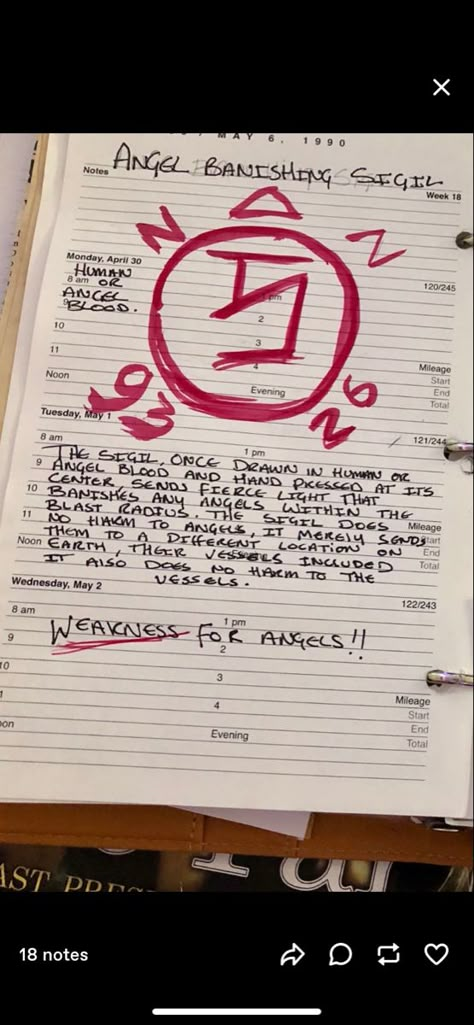 MAY 6, 1990
ANGEL BANISHING SIGIL
Notes
Week 18
Monday, April 30
120/245
HUMAN
8 am
OR
pm
ANGEL
9
BLOOD.
2
10
3
11
4
Mileage
Start
Noon
End
Evening
Total
Tuesday, May 1
121/244
8 am
1 pm
THE SIGIL, ONCE DRAWN IN HUMAN OR
9 ANGEL BLOOD AND HAND PRESSED AT ITS
CENTER, SENDS FIERCE LIGHT THAT
10 BANISHES ANY ANGELS WITHIN THE
BLAST RADIUS. THE SIGIL DOES Mileage
11 NO HARM TO ANGELS, IT MERELY SENDS Start
THEM TO A DIFFERENT LOCATION ON End
Noon EARTH, THEIR VESSELS INCLUDED Total
IT ALSO DOES NO HARM TO THE
VESSELS.
Wednesday, May 2
122/243
8 am
1 pm
WEAKNESS FOR ANGELS!!
9
2
10
3
4
Mileage
Start
Evening
End
Total
18 notes